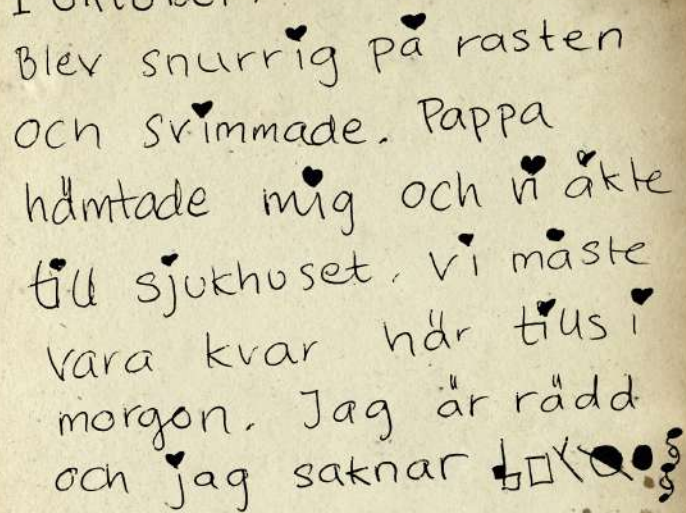 1 oktober.
Blev snurrig på rasten
och svimmade. Pappa
hämtade mig och vi åkte
till sjukhuset. Vi måste
vara kvar här tills i
morgon. Jag är rädd
och jag saknar